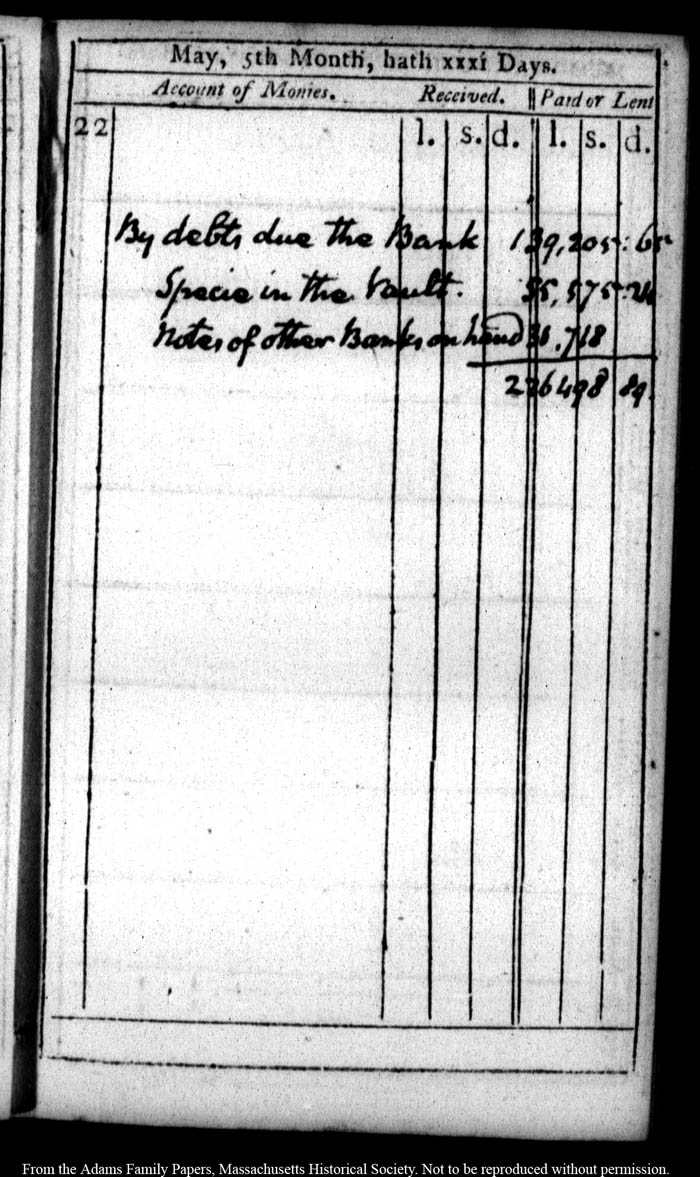 May, 5th Month, hath xxxi Days.
Account of Monies. Received. Paid or Lent
22 l. s. d. l. s. d.
By debts due the Bank 139,205:65
Specie in the Vault. 55,575:24
Notes of other Banks on hand 31,718
226498 89.
From the Adams Family Papers, Massachusetts Historical Society. Not to be reproduced without permission.